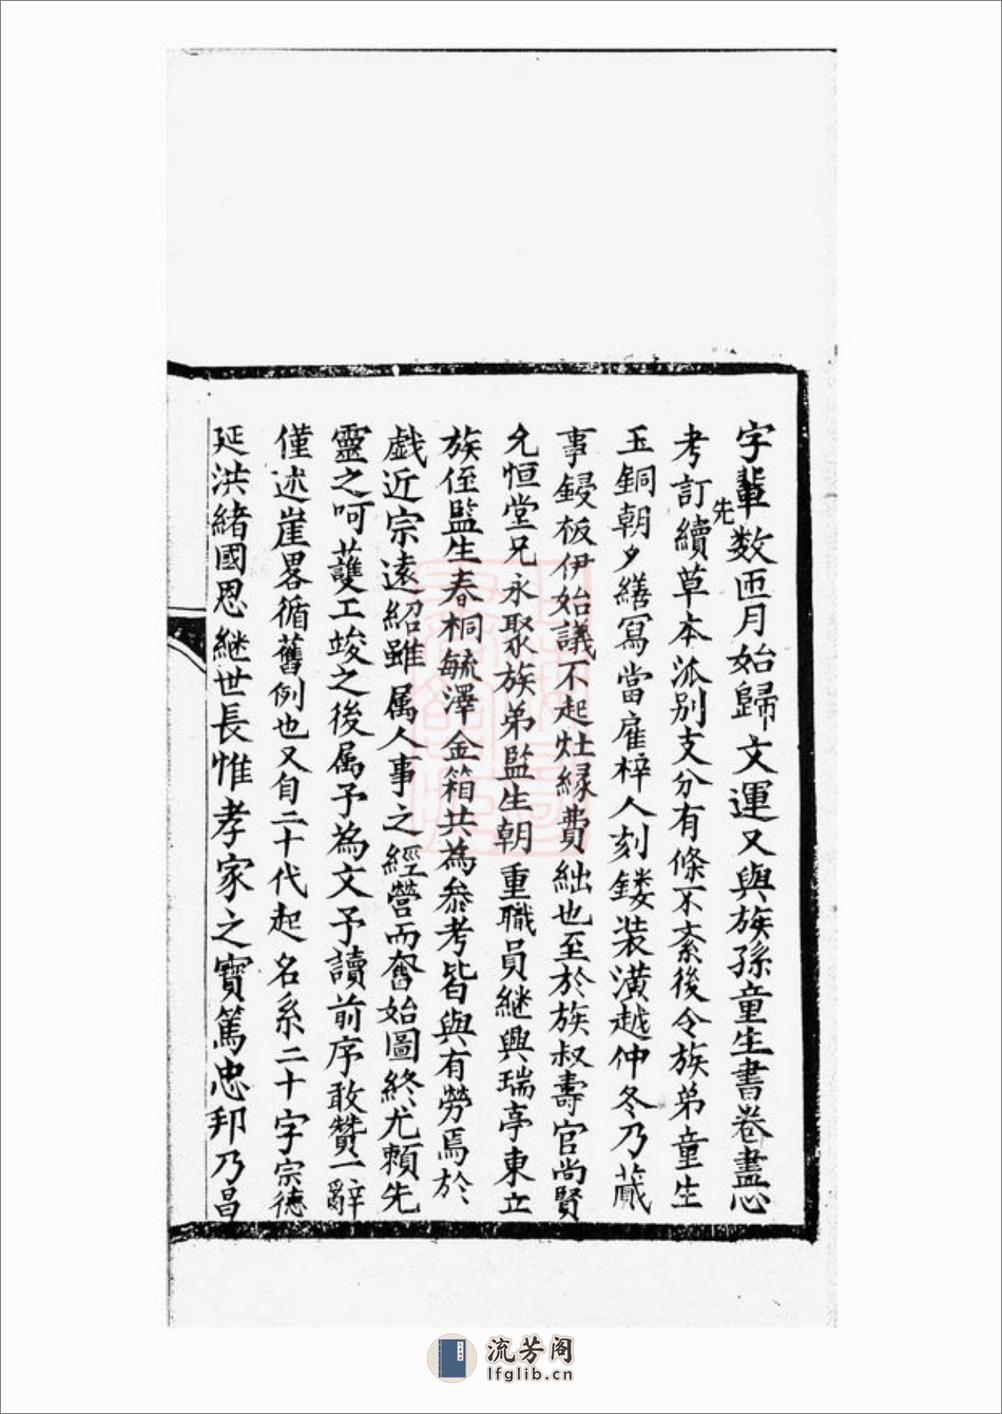 字輩先数匝月始歸文運又與族孫童生書卷盡心
考訂續草本派别支分有條不紊後令族弟童生
玉銅朝夕繕寫當雇梓人刻鏤装潢越仲冬乃蕆
事鋟板伊始議不起灶緣費絀也至於族叔壽官尚賢
允恒堂兄永聚族弟監生朝重職員継興瑞亭東立
族侄監生春桐毓澤金箱共為叅考皆與有勞焉於
戯近宗遠紹雖属人事之經營而奮始圖終尤賴先
靈之呵護工竣之後属予為文予讀前序敢贊一辭
僅述崖畧循舊例也又自二十代起名系二十字宗德
延洪緒國恩継世長惟孝家之寳篤忠邦乃昌
流芳阁
lfglib.cn